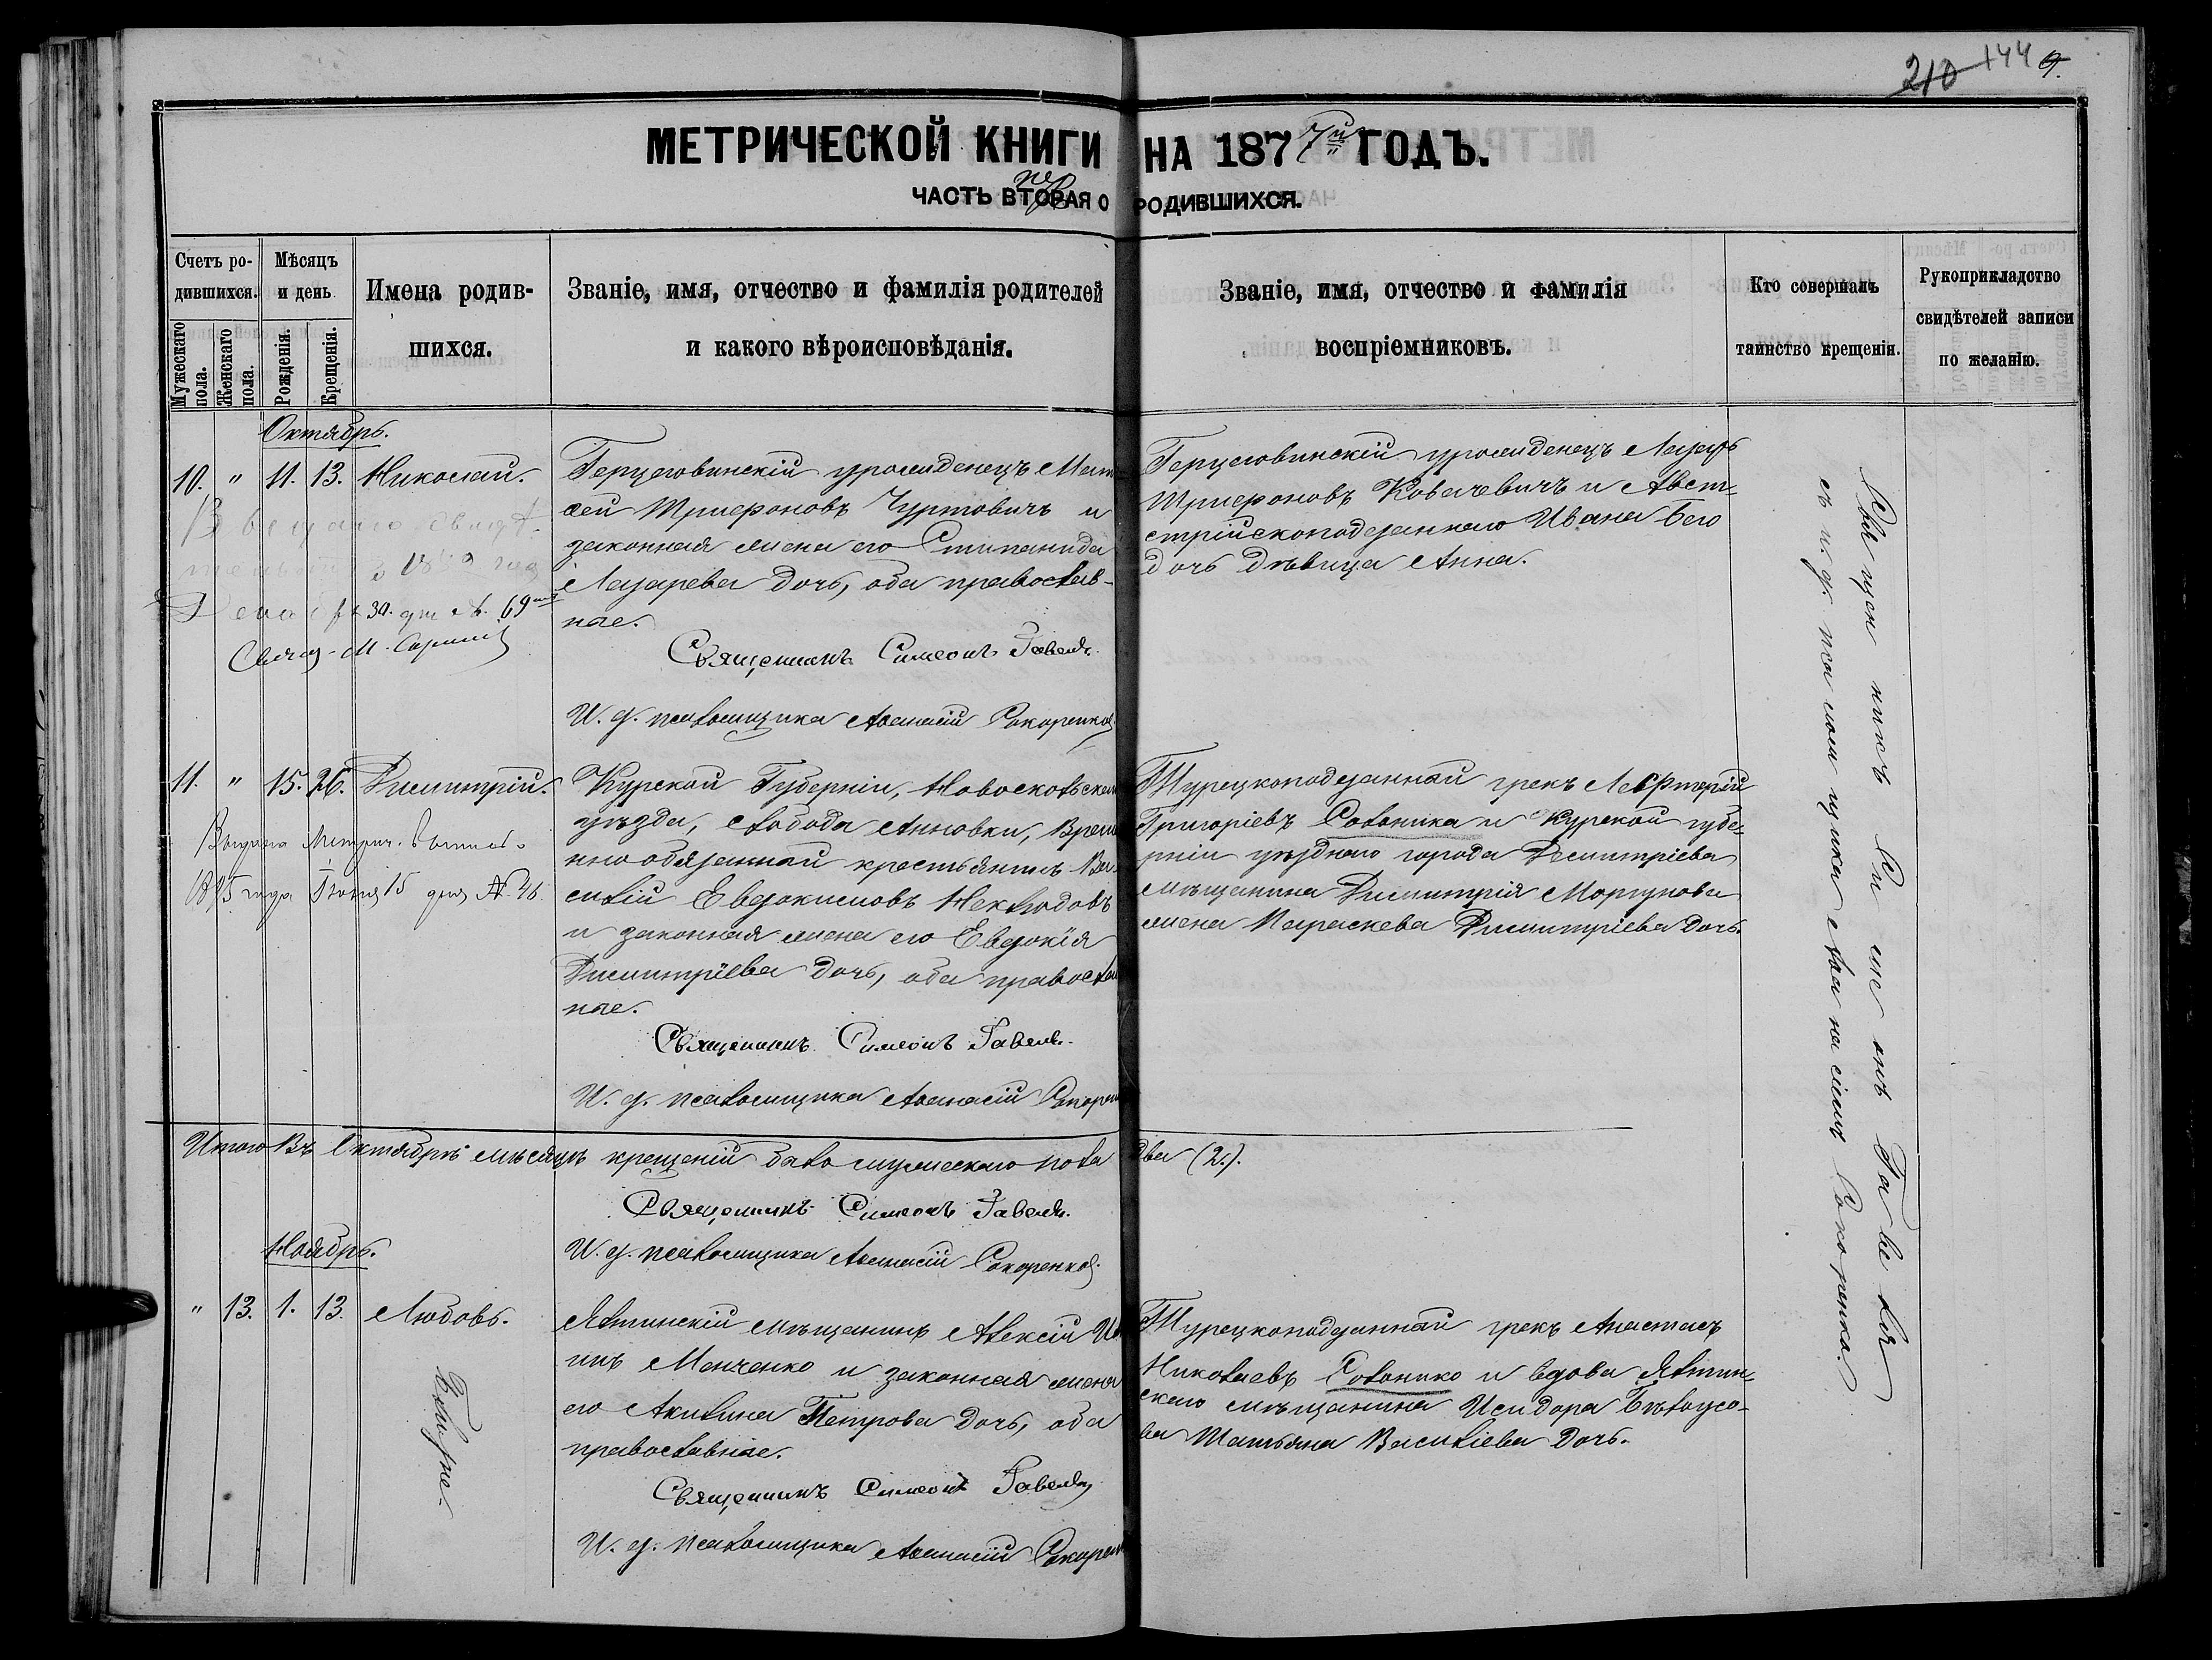 210 144 9.
МЕТРИЧЕСКОЙ КНИГИ НА 1877й ГОДЪ.
ЧАСТЬ ВТОРАЯ О РОДИВШИХСЯ.
Счетъ родившихся.
Мужескаго пола.
Женскаго пола.
Мѣсяцъ и день
Рожденія.
Крещенія.
Имена родив-
шихся.
Званіе, имя, отчество и фамилія родителей
и какого вѣроисповѣданія.
Званіе, имя, отчество и фамилія
воспріемниковъ.
Кто совершалъ
таинство крещенія.
Рукоприкладство
свидѣтелей записи
по желанію.
Октябрь.
10. " 11. 13. Николай.
30. дня № 69
Герцеговинскій уроженецъ
сей Трифоновъ Чуртовичъ и
законная жена его Стипанида
Лазарева дочь, оба православ-
ные.
Священникъ Симеонъ Гавель.
И. д. псаломщика Аѳанасій Сокоренко
Герцеговинскій уроженецъ Лазарь
Трифоновъ Ковачевичъ и Авст-
стрійскоподданнаго Ивана Бего
дочь дѣвица Анна.
11. " 15. 26. Димитрій.
Выдана Метрич. выпись
1895 года Іюня 15 дня № 46.
Курской Губерніи, Новоскольска
уѣзда, слобода Анновки, Време
ннообязанный крестьянинъ Ва-
силій Евдокимовъ Неклюдовъ
и законная жена его Евдокія
Димитріева дочь, оба православ
ные.
Священникъ Симеонъ Гавель.
И. д. псаломщика Аѳанасій Сокорен
Турецкоподданный грекъ Лефтерій
Григоріевъ Солоника и Курской губе-
рніи уѣзднаго города Димитріева
мѣщанина Димитрія Моргунова
жена Параскева Димитріева дочь.
Итого въ Октябрѣ мѣсяцѣ крещеній было мужескаго пола два (2.).
Священникъ Симеонъ Гавель.
И. д. псаломщика Аѳанасій Сокоренко.
Ноябрь.
" 13. 1. 13. Любовь.
Ялтинскій мѣщанинъ Алексій Ив
инъ Менченко и законная жена
его Акилина Петрова дочь, оба
православные.
Священникъ Симеонъ Гавель
И. д. псаломщика Аѳанасій Сокорен
Турецкоподданный грекъ Анастасъ
Николаевъ Солонико и вдова Ялтин-
скаго мѣщанина Исидора Бѣлоусо-
ва Татьяна Василіева дочь.
Священникъ Симеонъ Гавель
съ и. д. псаломщика Аѳанасіемъ Сокоренко.